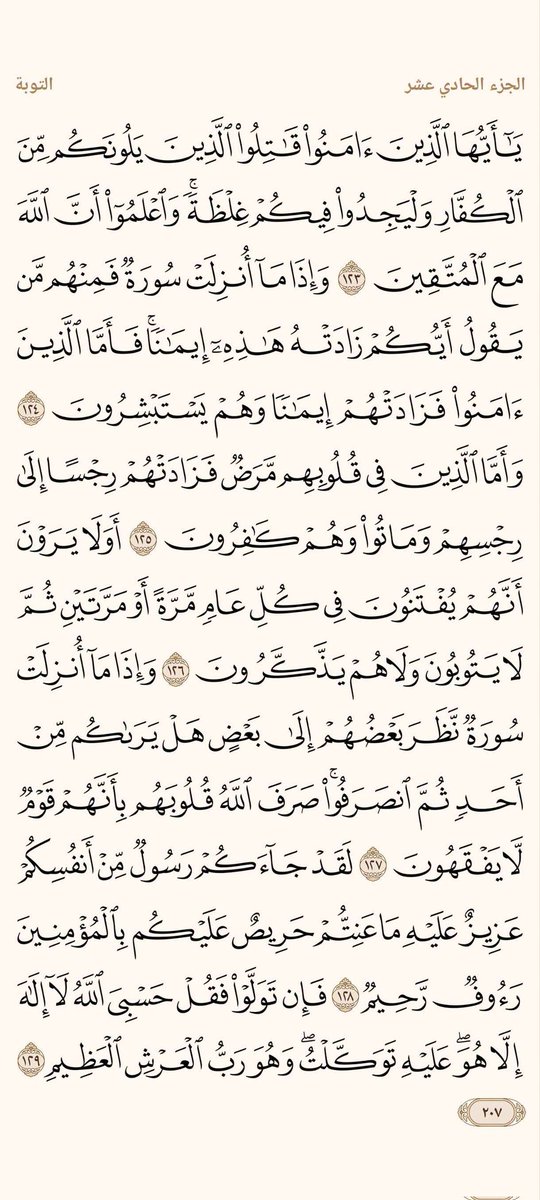 الجزء الحادي عشر
التوبة
يَـٰٓأَيُّهَا ٱلَّذِينَ ءَامَنُوا۟ قَـٰتِلُوا۟ ٱلَّذِينَ يَلُونَكُم مِّنَ
ٱلْكُفَّارِ وَلْيَجِدُوا۟ فِيكُمْ غِلْظَةً ۚ وَٱعْلَمُوٓا۟ أَنَّ ٱللَّهَ
مَعَ ٱلْمُتَّقِينَ ١٢٣ وَإِذَا مَآ أُنزِلَتْ سُورَةٌ فَمِنْهُم مَّن
يَقُولُ أَيُّكُمْ زَادَتْهُ هَـٰذِهِۦٓ إِيمَـٰنًا ۚ فَأَمَّا ٱلَّذِينَ
ءَامَنُوا۟ فَزَادَتْهُمْ إِيمَـٰنًا وَهُمْ يَسْتَبْشِرُونَ ١٢٤
وَأَمَّا ٱلَّذِينَ فِى قُلُوبِهِم مَّرَضٌ فَزَادَتْهُمْ رِجْسًا إِلَىٰ
رِجْسِهِمْ وَمَاتُوا۟ وَهُمْ كَـٰفِرُونَ ١٢٥ أَوَلَا يَرَوْنَ
أَنَّهُمْ يُفْتَنُونَ فِى كُلِّ عَامٍ مَّرَّةً أَوْ مَرَّتَيْنِ ثُمَّ
لَا يَتُوبُونَ وَلَا هُمْ يَذَّكَّرُونَ ١٢٦ وَإِذَا مَآ أُنزِلَتْ
سُورَةٌ نَّظَرَ بَعْضُهُمْ إِلَىٰ بَعْضٍ هَلْ يَرَىٰكُم مِّنْ
أَحَدٍ ثُمَّ ٱنصَرَفُوا۟ ۚ صَرَفَ ٱللَّهُ قُلُوبَهُم بِأَنَّهُمْ قَوْمٌ
لَّا يَفْقَهُونَ ١٢٧ لَقَدْ جَآءَكُمْ رَسُولٌ مِّنْ أَنفُسِكُمْ
عَزِيزٌ عَلَيْهِ مَا عَنِتُّمْ حَرِيصٌ عَلَيْكُم بِٱلْمُؤْمِنِينَ
رَءُوفٌ رَّحِيمٌ ١٢٨ فَإِن تَوَلَّوْا۟ فَقُلْ حَسْبِىَ ٱللَّهُ لَآ إِلَـٰهَ
إِلَّا هُوَ ۖ عَلَيْهِ تَوَكَّلْتُ ۖ وَهُوَ رَبُّ ٱلْعَرْشِ ٱلْعَظِيمِ ١٢٩
٢٠٧